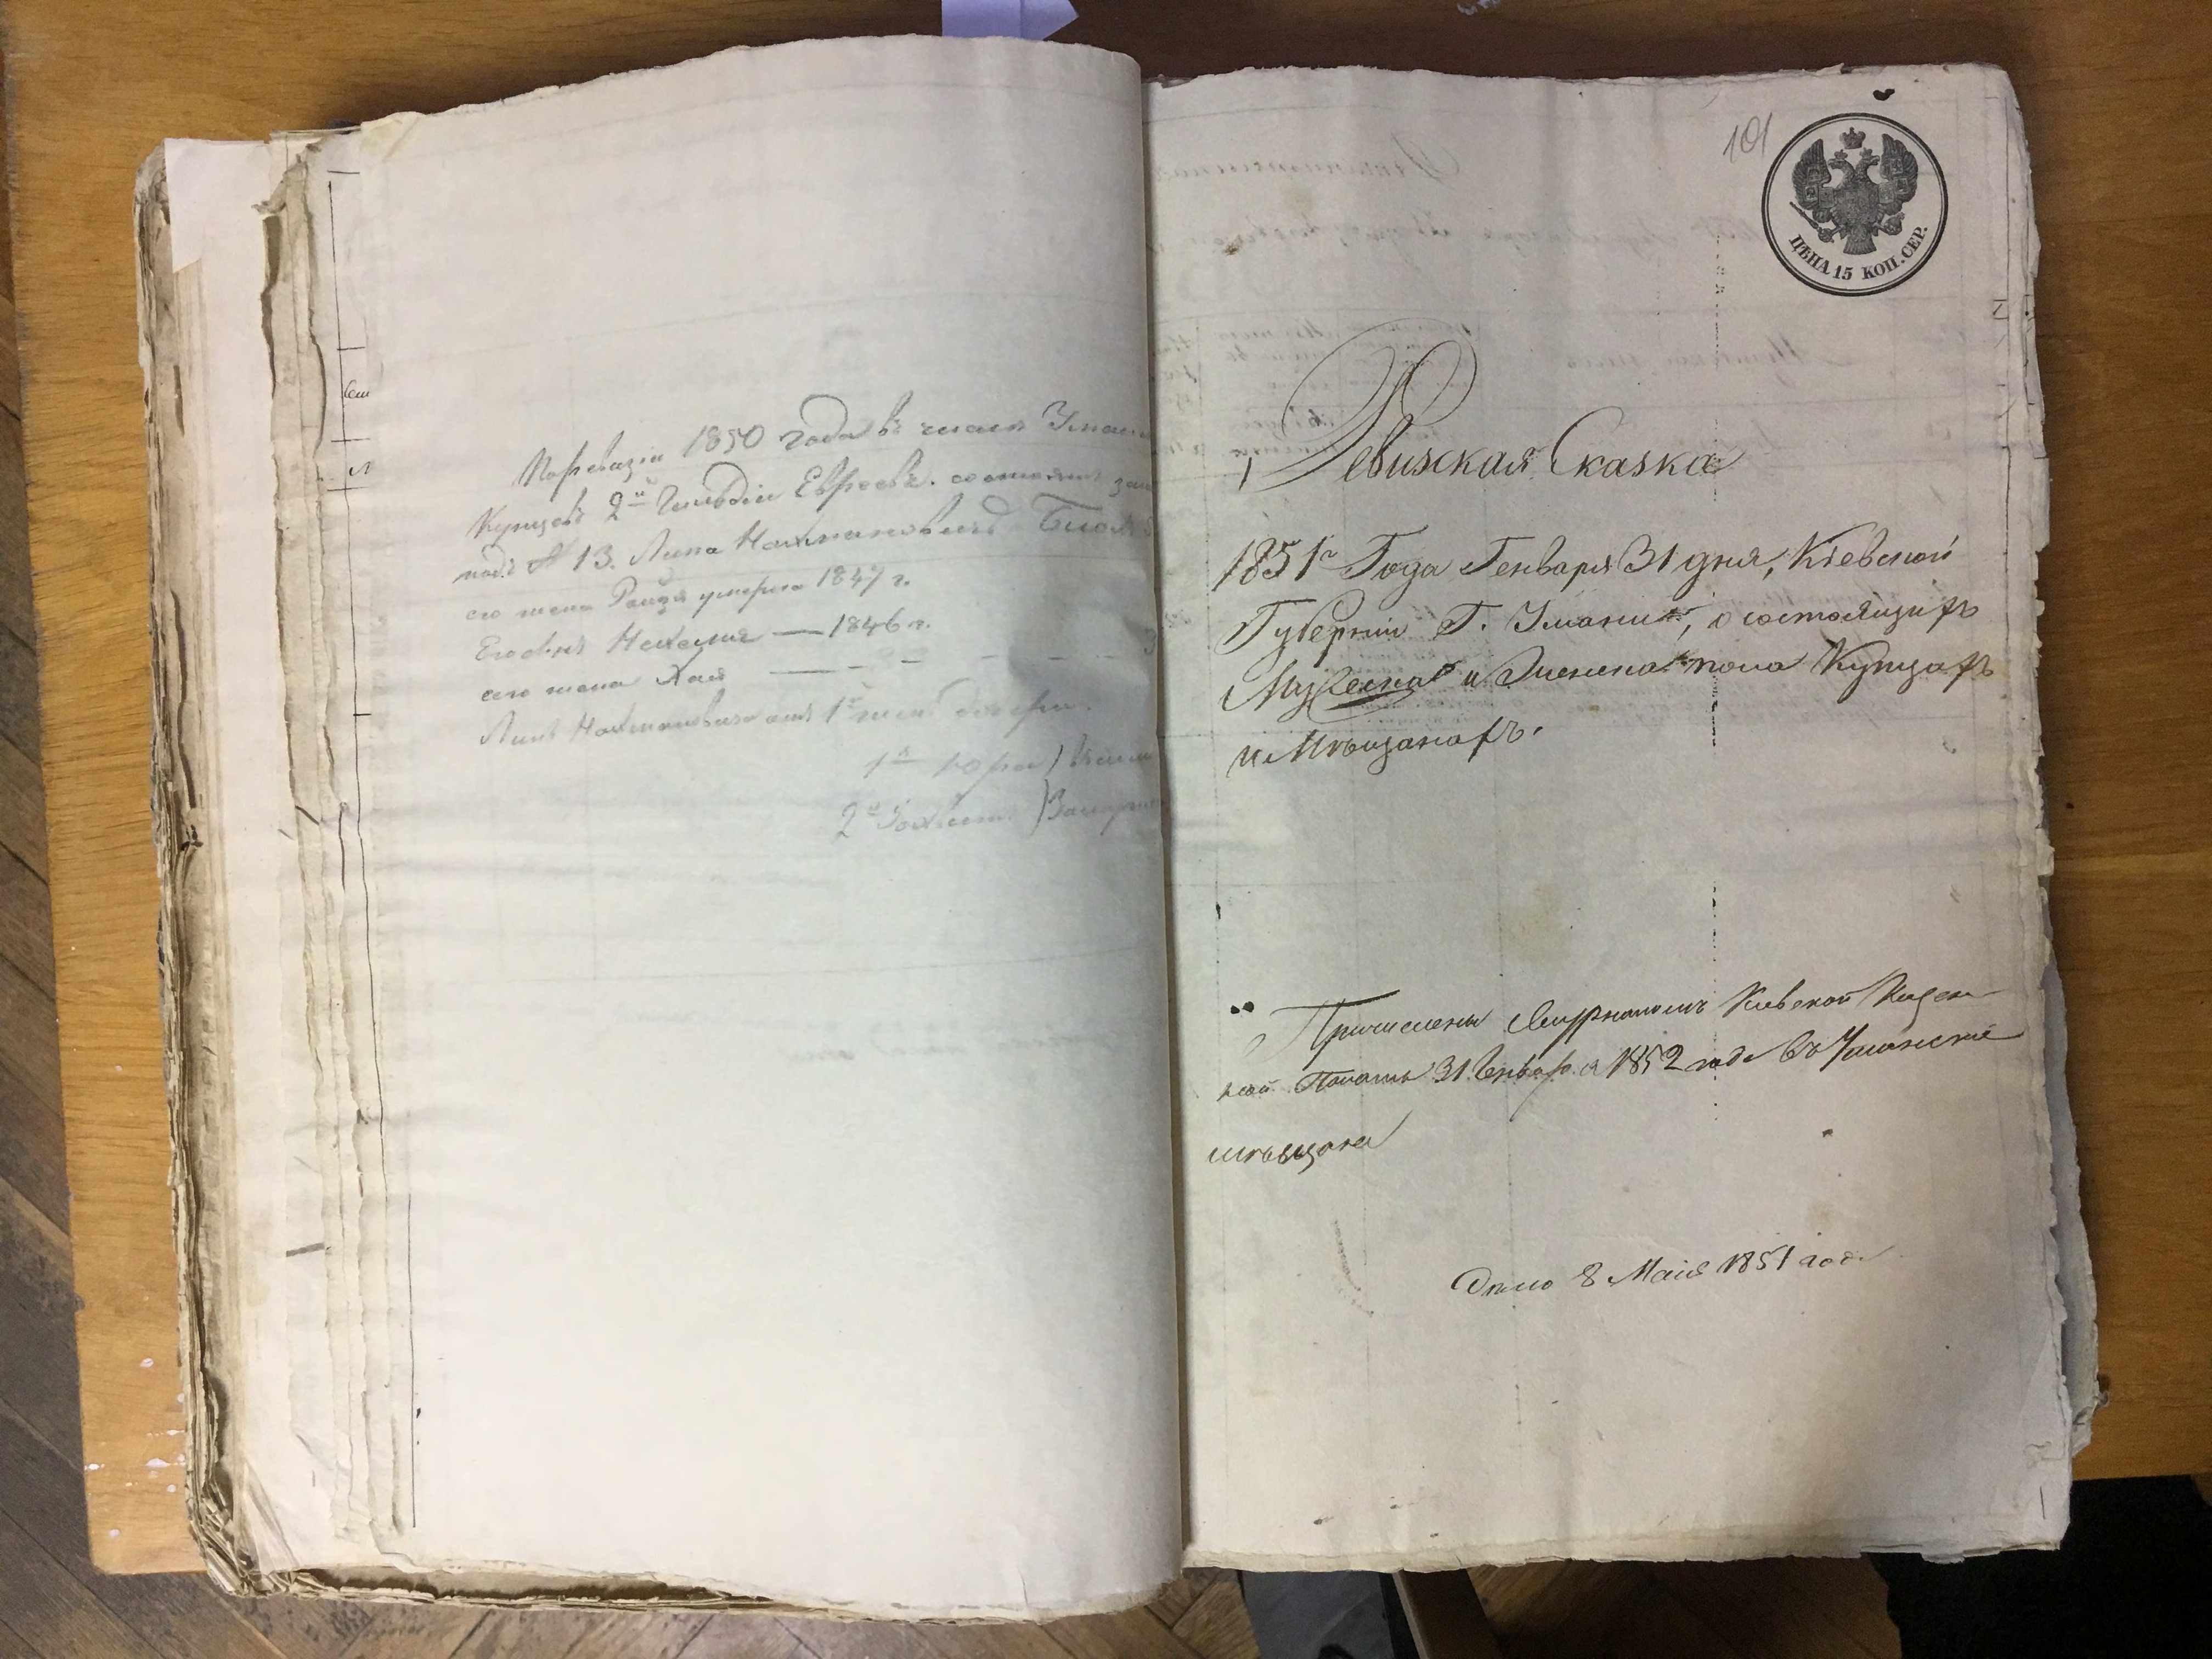 По ревизіи 1850 года въ числе
Купцовъ 2й Гильдіи Евреевъ состоятъ
подъ № 13. Липа Нахмановичъ
его жена умерла 1847 г.
Его сынъ — 1846 г.
его жена Хая — — — —
Липы Нахмановича отъ 1й жены дочери.
1я Юра)
2я
101
ЦѢНА 15 КОП. СЕР.
Ревижская Сказка
1851го Года Генваря 31 дня, Кіевской
Губерніи Г. Умани, о состоящихъ
Мужеска и Женска пола Купцахъ
и Мѣщанахъ.
Причислены Журналомъ Кіевской Казен-
ной Палаты 31 Генваря 1852 года въ Уманскіе
мѣщане
Дано 8 Маія 1851 года